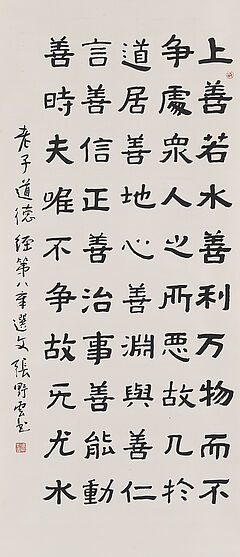 上善若水善利万物而不
争處眾人之所惡故几於
道居善地心善淵與善仁
言善信正善治事善能動
善時夫唯不争故无尤水
老子道德經第八章選文 張野雲書